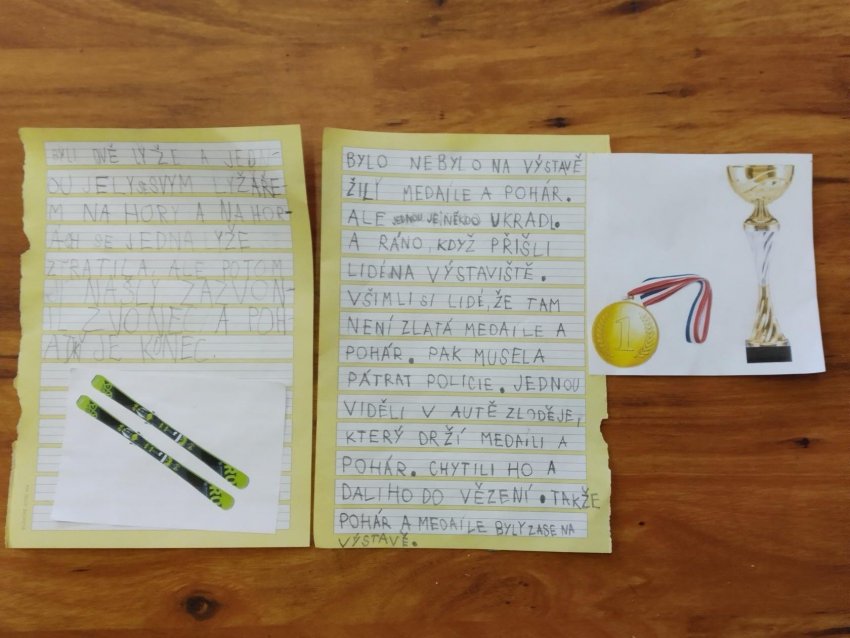 BYLI DVĚ LYŽE A JEDN-
OU JELY S SVYM LYŽAŘE-
M NA HORY A NA HOR-
ÁCH SE JEDNA LYŽE
ZTRATILA, ALE POTOM
JI NAŠLY ZAZVON-
IL ZVONEC A POH-
ÁDKY JE KONEC.
BYLO NEBYLO NA VÝSTAVĚ
ŽILÍ MEDAILE A POHÁR.
ALE JEDNOU JE NĚKDO UKRADL.
A RÁNO, KDYŽ PŘIŠLI
LIDÉ NA VÝSTAVIŠTĚ.
VŠIMLI SI LIDÉ, ŽE TAM
NENÍ ZLATÁ MEDAILE A
POHÁR. PAK MUSELA
PÁTRAT POLICIE. JEDNOU
VIDĚLI V AUTĚ ZLODĚJE,
KTERÝ DRŽÍ MEDAILI A
POHÁR. CHYTILI HO A
DALI HO DO VĚZENÍ. TAKŽE
POHÁR A MEDAILE BYLY ZASE NA
VÝSTAVĚ.
1